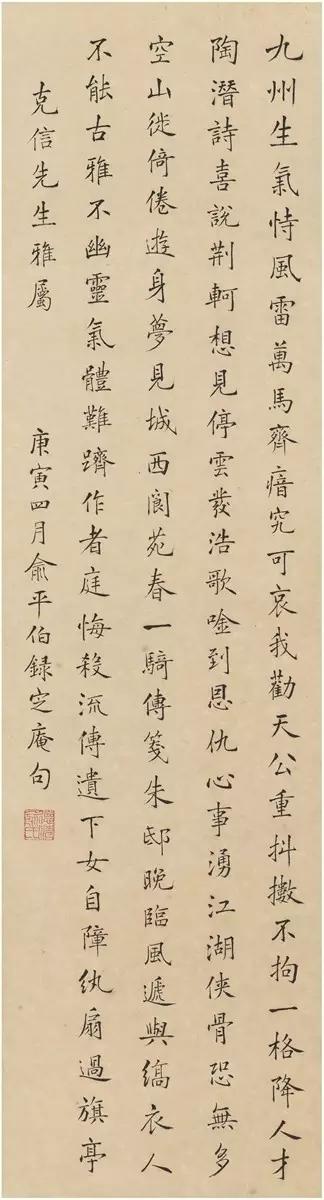 九州生氣恃風雷萬馬齊瘖究可哀我勸天公重抖擻不拘一格降人才
陶潛詩喜說荆軻想見停雲發浩歌唫到恩仇心事湧江湖俠骨恐無多
空山徙倚倦遊身夢見城西閬苑春一騎傳箋朱邸晚臨風遞與縞衣人
不能古雅不幽靈氣體難躋作者庭悔殺流傳遺下女自障紈扇過旗亭
克信先生雅屬
庚寅四月俞平伯錄定庵句